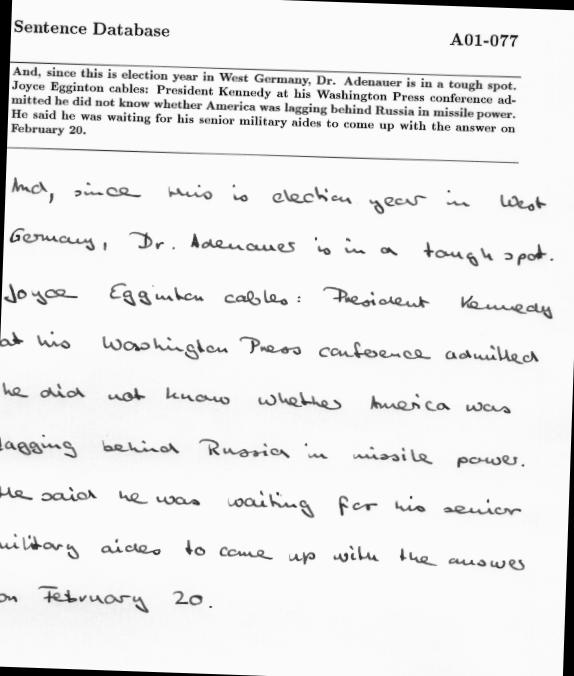 Sentence Database
A01-077
And, since this is election year in West Germany, Dr. Adenauer is in a tough spot.
Joyce Egginton cables: President Kennedy at his Washington Press conference ad-
mitted he did not know whether America was lagging behind Russia in missile power.
He said he was waiting for his senior military aides to come up with the answer on
February 20.
And, since this is election year in West
Germany, Dr. Adenauer is in a tough spot.
Joyce Egginton cables: President Kennedy
at his Washington Press conference admitted
he did not know whether America was
lagging behind Russia in missile power.
He said he was waiting for his senior
military aides to come up with the answer
on February 20.